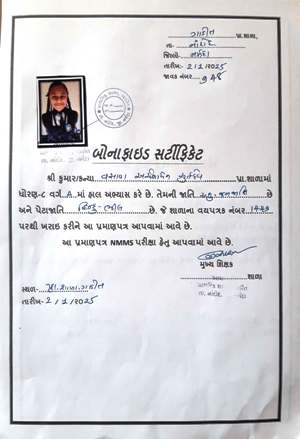 પ્રા.શાળા,
તા.- નાંદોદ
જિલ્લો.- નર્મદા
તારીખ:- 2/1/2025
જાવક નંબર 948
બોનાફાઇડ સર્ટીફિકેટ
શ્રી કુમાર/કન્યા વસાવા પ્રા.શાળામાં
ધોરણ-૮ વર્ગ A માં હાલ અભ્યાસ કરે છે. તેમની જાતિ અનુ.જનજાતિ છે
અને પેટાજાતિ હિન્દુ-ભીલ છે. જે શાળાના વયપત્રક નંબર
પરથી ખરાઇ કરીને આ પ્રમાણપત્ર આપવામાં આવે છે.
આ પ્રમાણપત્ર NMMS પરીક્ષા હેતુ આપવામાં આવે છે.
મુખ્ય શિક્ષક
શાળા
સ્થળ:- પ્રા.શાળા.
તારીખ:- 2/1/2025